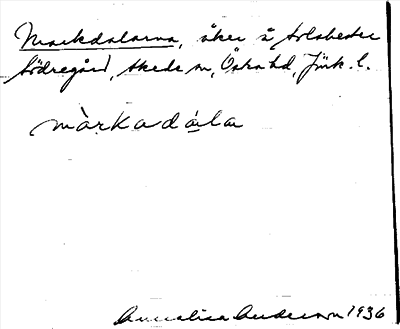 Markdalarna, åker å Solaboda
Södregård, Skeda sn, Östra hd, Jönk. l.
màrkadála
Annalisa Anderson 1936